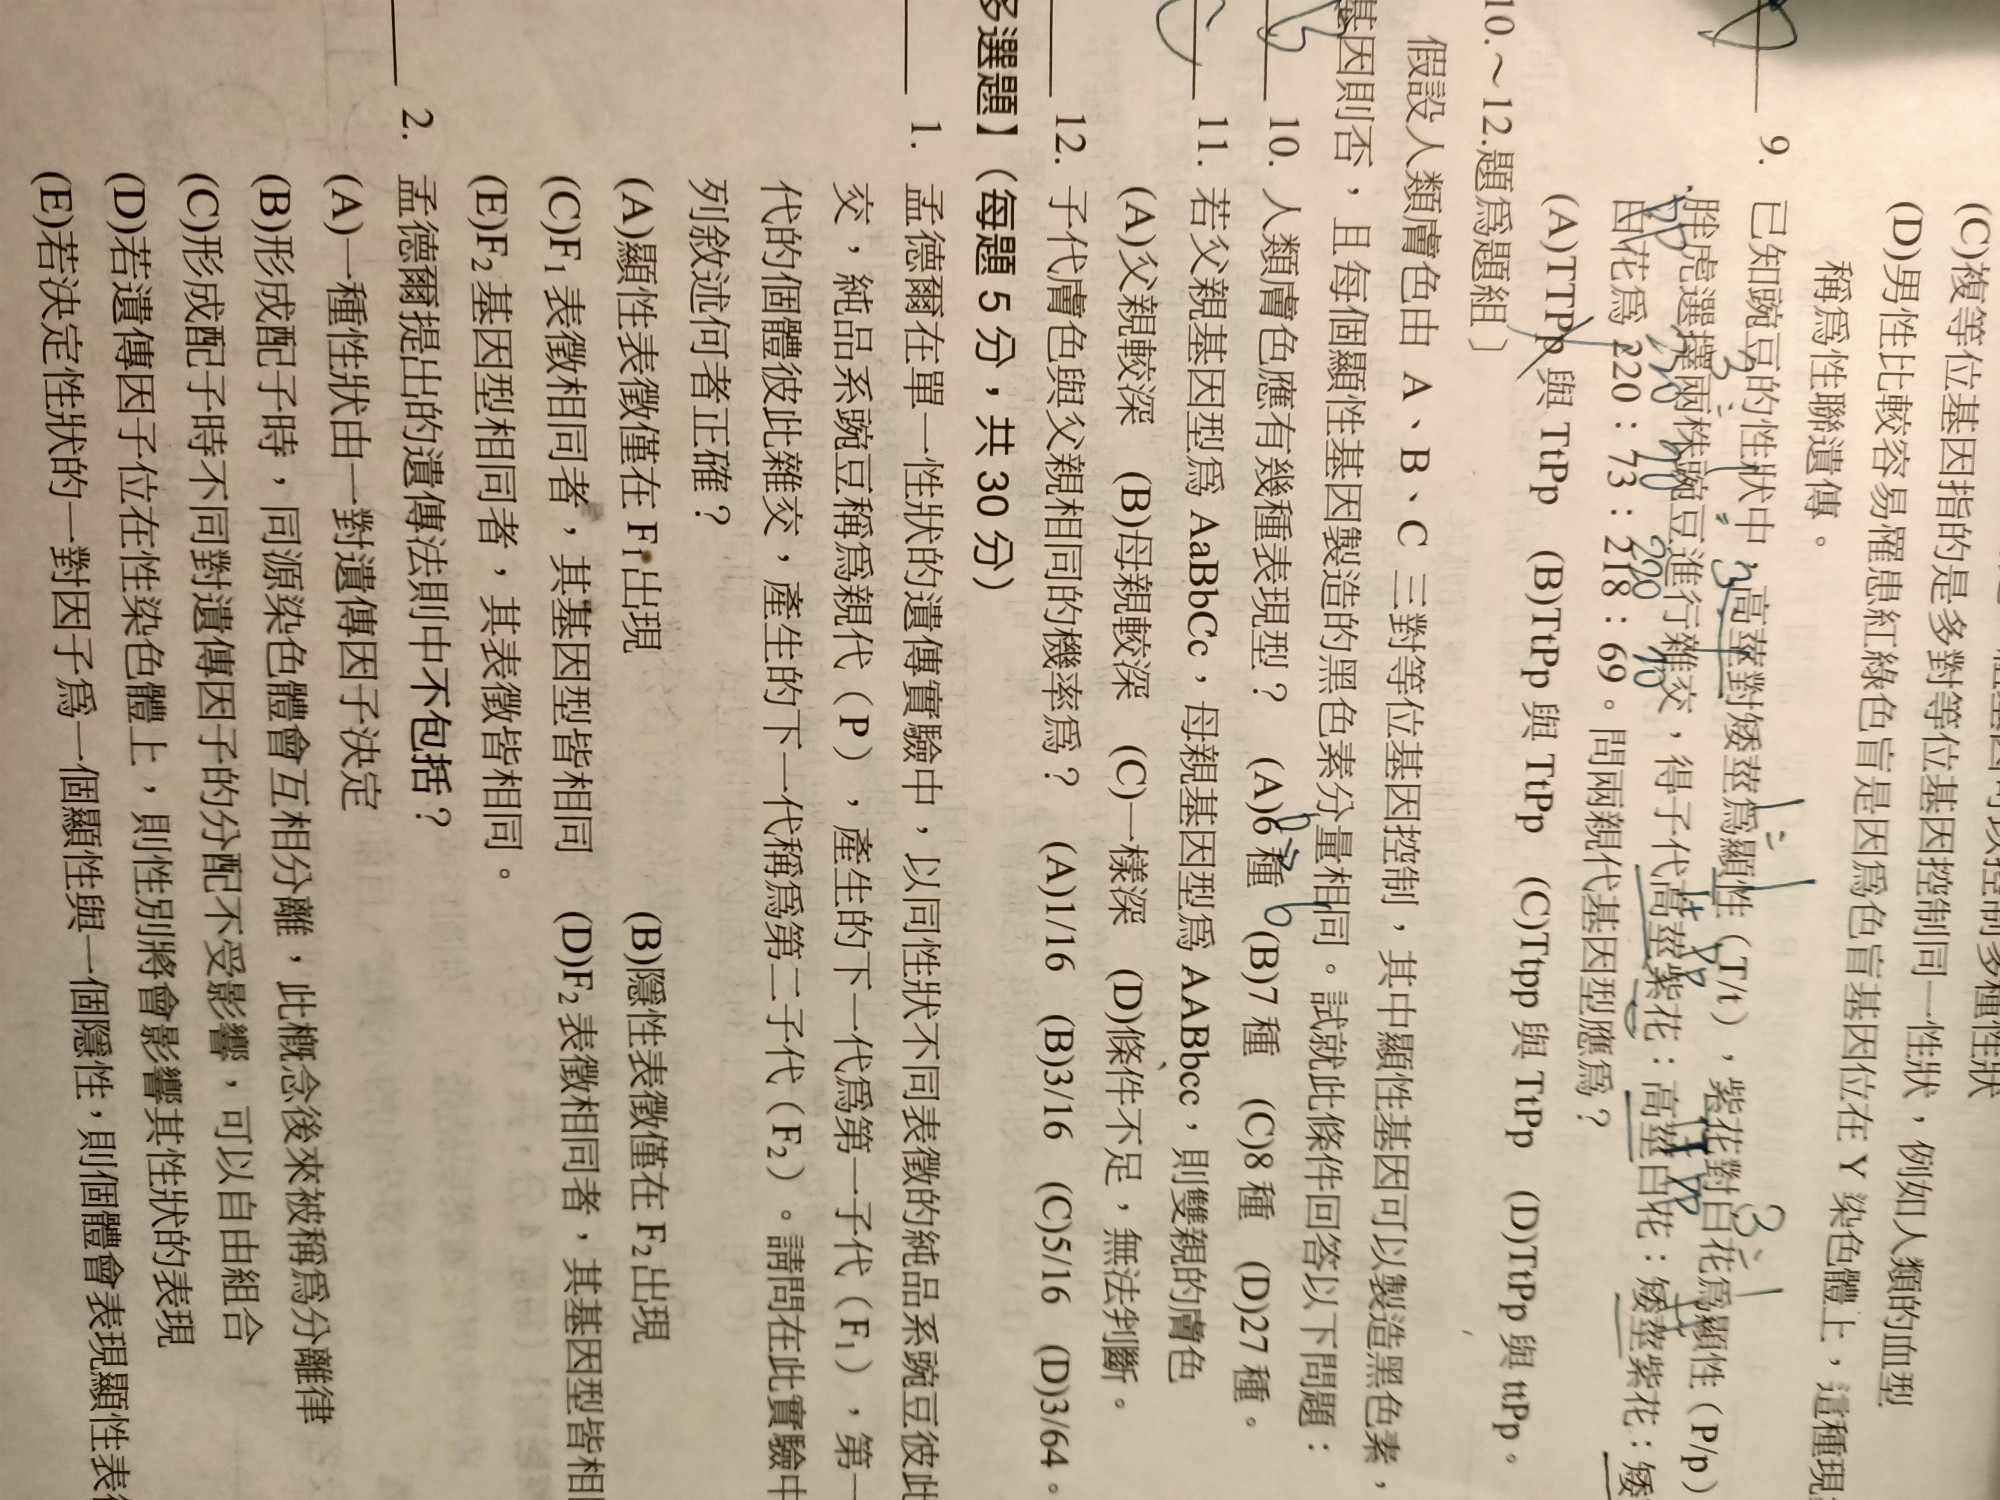 (C)複等位基因指的是多對等位基因控制同一性狀，例如人類的血型
(D)男性比較容易罹患紅綠色盲是因為色盲基因位在 Y 染色體上，這種現
稱為性聯遺傳。
9. 已知豌豆的性狀中，高莖對矮莖為顯性（T/t），紫花對白花為顯性（P/p）
胖虎選擇兩株豌豆進行雜交，得子代高莖紫花：高莖白花：矮莖紫花：矮
白花為 220：73：218：69。問兩親代基因型應為？
(A)TTPp 與 TtPp (B)TtPp 與 TtPp (C)Ttpp 與 TtPp (D)TtPp 與 ttPp。
10.～12.題為題組〕
假設人類膚色由 A、B、C 三對等位基因控制，其中顯性基因可以製造黑色素，
基因則否，且每個顯性基因製造的黑色素分量相同。試就此條件回答以下問題：
10. 人類膚色應有幾種表現型？ (A)6 種 (B)7 種 (C)8 種 (D)27 種。
11. 若父親基因型為 AaBbCc，母親基因型為 AABbcc，則雙親的膚色
(A)父親較深 (B)母親較深 (C)一樣深 (D)條件不足，無法判斷。
12. 子代膚色與父親相同的機率為？ (A)1/16 (B)3/16 (C)5/16 (D)3/64。
多選題】（每題 5 分，共 30 分）
1. 孟德爾在單一性狀的遺傳實驗中，以同性狀不同表徵的純品系豌豆彼此
交，純品系豌豆稱為親代（P），產生的下一代為第一子代（F₁），第一
代的個體彼此雜交，產生的下一代稱為第二子代（F₂）。請問在此實驗中
列敘述何者正確？
(A)顯性表徵僅在 F₁ 出現 (B)隱性表徵僅在 F₂ 出現
(C)F₁ 表徵相同者，其基因型皆相同 (D)F₂ 表徵相同者，其基因型皆相
(E)F₂ 基因型相同者，其表徵皆相同。
2. 孟德爾提出的遺傳法則中不包括？
(A)一種性狀由一對遺傳因子決定
(B)形成配子時，同源染色體會互相分離，此概念後來被稱為分離律
(C)形成配子時不同對遺傳因子的分配不受影響，可以自由組合
(D)若遺傳因子位在性染色體上，則性別將會影響其性狀的表現
(E)若決定性狀的一對因子為一個顯性與一個隱性，則個體會表現顯性表